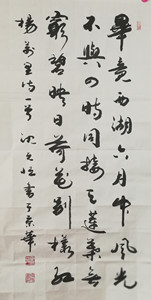 畢竟西湖六月中風光
不與四時同接天蓮葉無
窮碧映日荷花別樣紅
楊萬里詩一首 沈文恒書于京華